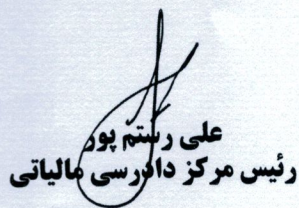 علی رستم پور
رئیس مرکز دادرسی مالیاتی